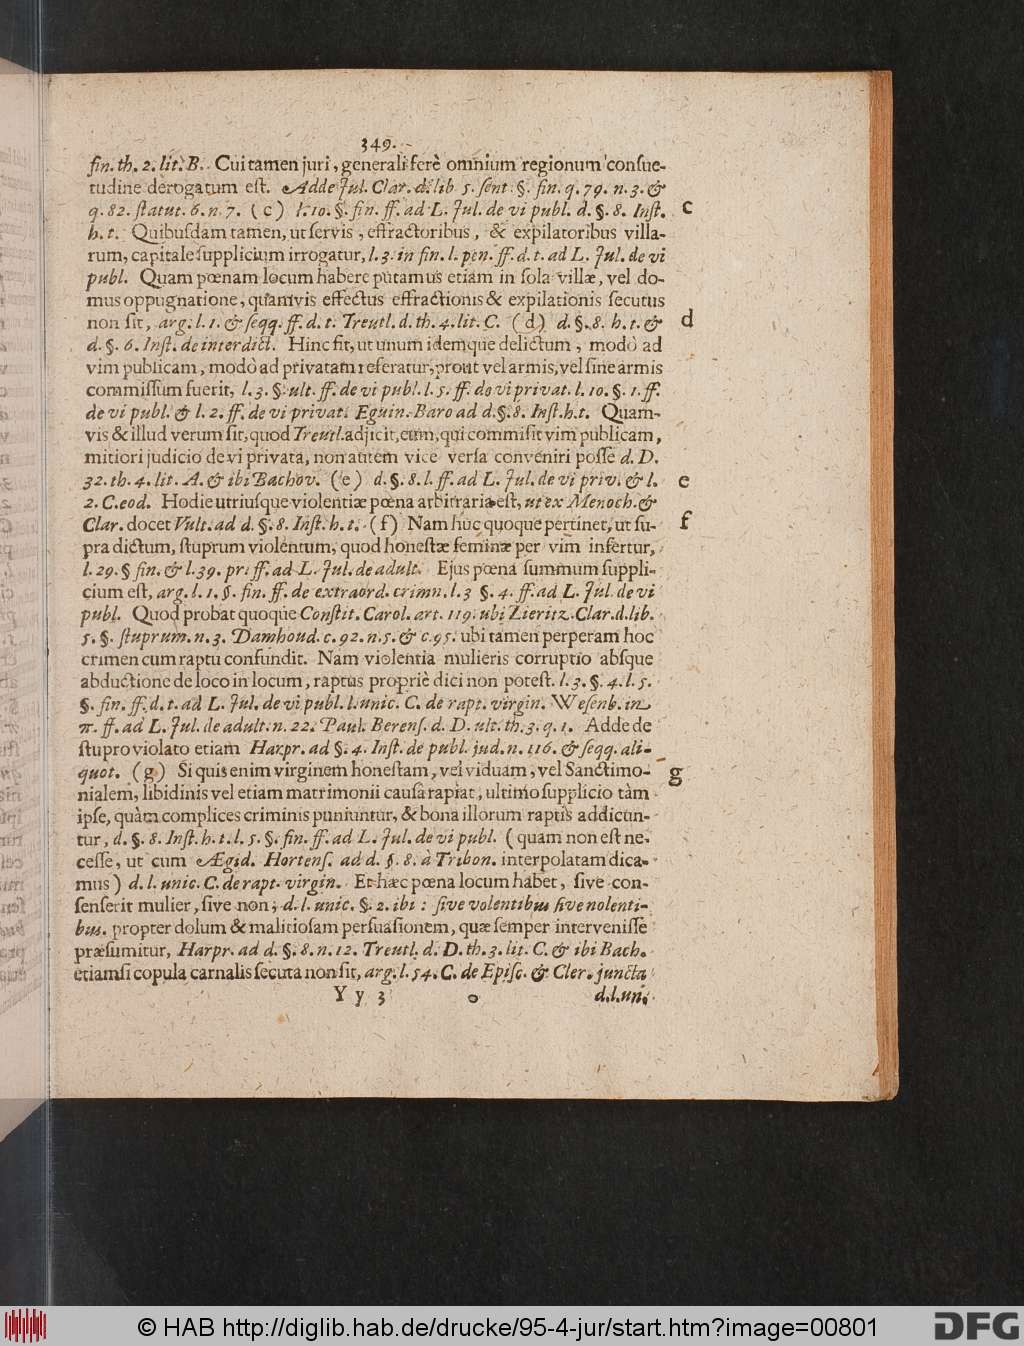 349.
fin. th. 2. lit. B. Cui tamen juri, generali ferè omnium regionum consue-
tudine derogatum est. Adde Jul. Clar. d. lib 5. sent. §. fin. q. 79. n. 3. &
q. 82. statut. 6. n. 7. (c) l. 10. §. fin. ff. ad L. Jul. de vi publ. d. §. 8. Inst.
c
h. t. Quibusdam tamen, ut servis, effractoribus, & expilatoribus villa-
rum, capitale supplicium irrogatur, l. 3. in fin. l. pen. ff. d. t. ad L. Jul. de vi
publ. Quam pœnam locum habere putamus etiam in sola villæ, vel do-
mus oppugnatione, quamvis effectus effractionis & expilationis secutus
non sit, arg. l. 1. & seqq. ff. d. t. Treutl. d. th. 4. lit. C. (d) d. §. 8. h. t. &
d
d. §. 6. Inst. de interdict. Hinc fit, ut unum idemque delictum, modò ad
vim publicam, modò ad privatam referatur, prout vel armis, vel sine armis
commissum fuerit, l. 3. § ult. ff. de vi publ. l. 5. ff. de vi privat. l. 10. §. 1. ff.
de vi publ. & l. 2. ff. de vi privat. Eguin. Baro ad d. §. 8. Inst. h. t. Quam-
vis & illud verum sit, quod Treutl. adjicit, eum, qui commisit vim publicam,
mitiori judicio de vi privata, non autem vice versa conveniri posse d. D.
32. th. 4. lit. A. & ibi Bachov. (e) d. §. 8. l. ff. ad L. Jul. de vi priv. & l.
e
2. C. eod. Hodie utriusque violentiæ pœna arbitraria est, ut ex Menoch. &
Clar. docet Vult. ad d. §. 8. Inst. h. t. (f) Nam huc quoque pertinet, ut su-
f
pra dictum, stuprum violentum, quod honestæ feminæ per vim infertur,
l. 29. § fin. & l. 39. pr. ff. ad L. Jul. de adult. Ejus pœna summum suppli-
cium est, arg. l. 1. §. fin. ff. de extraord. crimn. l. 3 §. 4. ff. ad L. Jul. de vi
publ. Quod probat quoque Constit. Carol. art. 119. ubi Zieritz. Clar. d. lib.
5. §. stuprum. n. 3. Damhoud. c. 92. n. 5. & c. 95. ubi tamen perperam hoc
crimen cum raptu confundit. Nam violentia mulieris corruptio absque
abductione de loco in locum, raptus propriè dici non potest. l. 3. §. 4. l. 5.
§. fin. ff. d. t. ad L. Jul. de vi publ. l. unic. C. de rapt. virgin. Wesenb. in
π. ff. ad L. Jul. de adult. n. 22. Paul. Berens. d. D. ult. th. 3. q. 1. Adde de
stupro violato etiam Harpr. ad §. 4. Inst. de publ. jud. n. 116. & seqq. ali-
quot. (g) Si quis enim virginem honestam, vel viduam, vel Sanctimo-
g
nialem, libidinis vel etiam matrimonii causa rapiat, ultimo supplicio tàm
ipse, quàm complices criminis puniuntur, & bona illorum raptis addicun-
tur, d. §. 8. Inst. h. t. l. 5. §. fin. ff. ad L. Jul. de vi publ. (quam non est ne-
cesse, ut cum Ægid. Hortens. ad d. §. 8. à Tribon. interpolatam dica-
mus) d. l. unic. C. de rapt. virgin. Et hæc pœna locum habet, sive con-
senserit mulier, sive non, d. l. unic. §. 2. ibi: sive volentibus sive nolenti-
bus. propter dolum & malitiosam persuasionem, quæ semper intervenisse
præsumitur, Harpr. ad d. §. 8. n. 12. Treutl. d. D. th. 3. lit. C. & ibi Bach.
etiamsi copula carnalis secuta non sit, arg. l. 54. C. de Episc. & Cler. juncta
Y y 3
d. l. un.
© HAB http://diglib.hab.de/drucke/95-4-jur/start.htm?image=00801
DFG